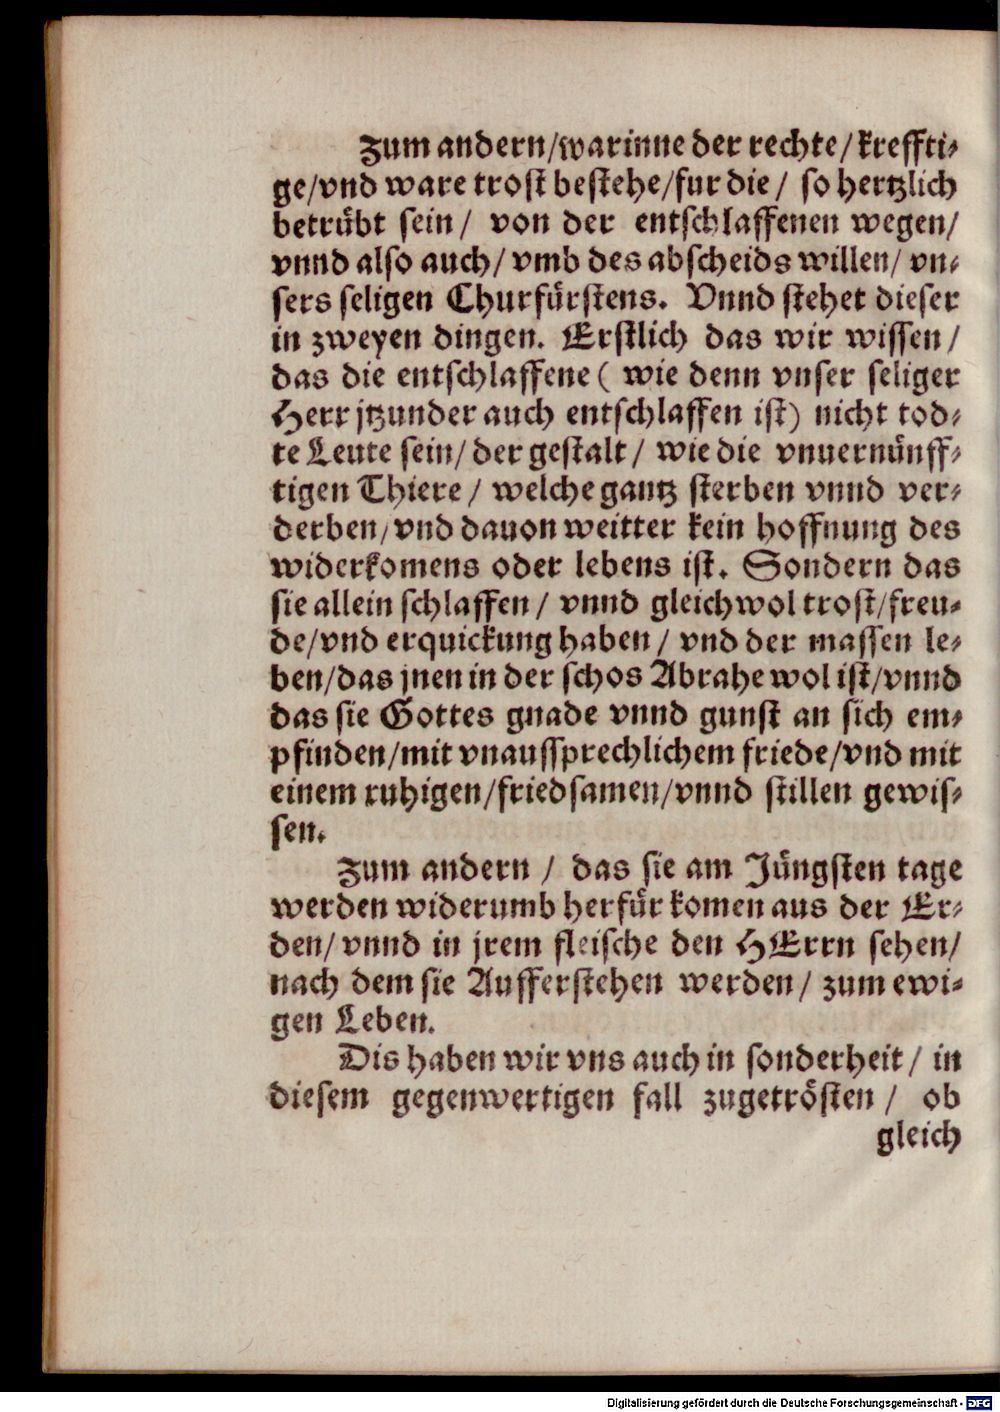 Zum andern/warinne der rechte/kreffti⸗
ge/vnd ware trost bestehe/fur die/ so hertzlich
betrübt sein/ von der entschlaffenen wegen/
vnnd also auch/ vmb des abscheids willen/ vn⸗
sers seligen Churfürstens. Vnnd stehet dieser
in zweyen dingen. Erstlich das wir wissen/
das die entschlaffene ( wie denn vnser seliger
Herr jtzunder auch entschlaffen ist) nicht tod⸗
te Leute sein/ der gestalt/ wie die vnuernünff⸗
tigen Thiere/ welche gantz sterben vnnd ver⸗
derben/vnd dauon weitter kein hoffnung des
widerkomens oder lebens ist. Sondern das
sie allein schlaffen/ vnnd gleichwol trost/freu⸗
de/vnd erquickung haben/ vnd der massen le⸗
ben/das jnen in der schos Abrahe wol ist/vnnd
das sie Gottes gnade vnnd gunst an sich em⸗
pfinden/mit vnaussprechlichem friede/vnd mit
einem ruhigen/friedsamen/vnnd stillen gewis⸗
sen.
Zum andern / das sie am Jüngsten tage
werden widerumb herfür komen aus der Er⸗
den/ vnnd in jrem fleische den HErrn sehen/
nach dem sie Aufferstehen werden/ zum ewi⸗
gen Leben.
Dis haben wir vns auch in sonderheit/ in
diesem gegenwertigen fall zugetrösten/ ob
gleich
Digitalisierung gefördert durch die Deutsche Forschungsgemeinschaft - DFG